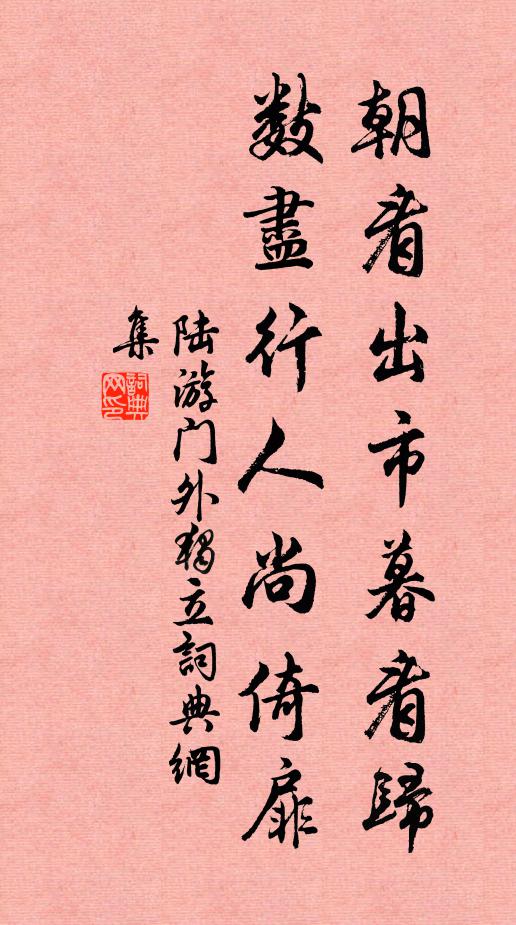 朝看出市暮看歸
數盡行人尚倚扉
陆游门外獨立詞典網
集
詞典
网印